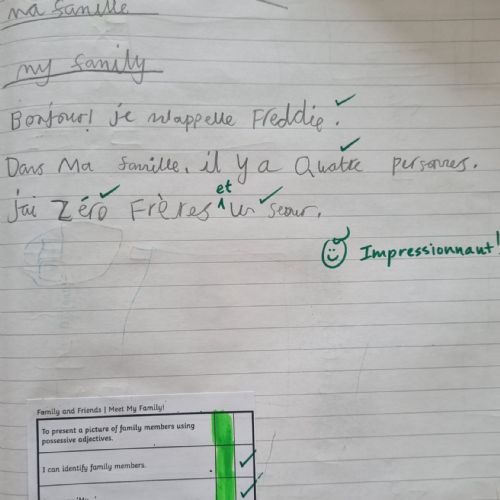 ma famille
my family
Bonjour! je m'appelle Freddie.
Dans Ma famille, il y a Quatre personnes.
J'ai Zéro Frères et un seour.
Impressionnant!
Family and Friends | Meet My Family!
To present a picture of family members using
possessive adjectives.
I can identify family members.